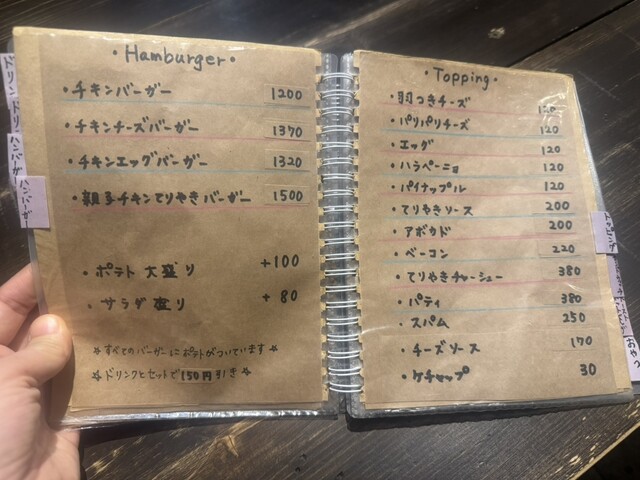 ・Hamburger・
・チキンバーガー 1200
・チキンチーズバーガー 1370
・チキンエッグバーガー 1320
・親子チキンてりやきバーガー 1500
・ポテト大盛り +100
・サラダ盛り +80
☆すべてのバーガーにポテトがついています☆
☆ドリンクとセットで150円引き☆
・Topping・
・羽つきチーズ 120
・パリパリチーズ 120
・エッグ 120
・ハラペーニョ 120
・パイナップル 120
・てりやきソース 200
・アボカド 200
・ベーコン 220
・てりやきチャーシュー 380
・パティ 380
・スパム 250
・チーズソース 170
・ケチャップ 30
ハンバーガー
ハンバーガー
トッピング
おやつ